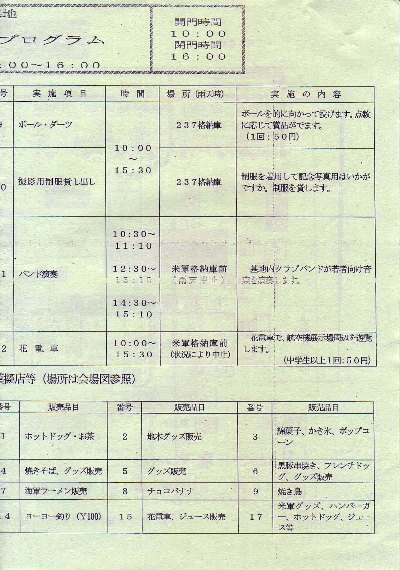 地
プログラム
:00～16:00
開門時間
10:00
閉門時間
16:00
号 実施項目 時間 場所(雨天時) 実施の内容
ボール・ダーツ
10:00
～
15:30
237格納庫
ボールを的に向かって投げます。点数
に応じて賞品がでます。
(1回:50円)
0 撮影用制服貸し出し
237格納庫
制服を着用して記念写真用はいかが
ですか。制服を貸します。
1 バンド演奏
10:30～
11:10
12:30～
13:10
14:30～
15:10
米軍格納庫前
(雨天中止)
基地内クラブバンドが若者向け音
楽を演奏します。
2 花電車
10:00～
15:30
米軍格納庫前
(状況により中止)
花電車で、航空機展示場周辺を遊覧
します。
(中学生以上1回:50円)
模擬店等(場所は会場図参照)
番号 販売品目 番号 販売品目 番号 販売品目
1 ホットドッグ・お茶 2 地本グッズ販売 3 綿菓子、かき氷、ポップコ
ーン
4 焼きそば、グッズ販売 5 グッズ販売 6 黒豚串焼き、フレンチドッ
グ、グッズ販売
7 海軍ラーメン販売 8 チョコバナナ 9 焼き鳥
14 ヨーヨー釣り(¥100) 15 花電車、ジュース販売 17 米軍グッズ、ハンバーガ
ー、ホットドッグ、ジュー
ス等